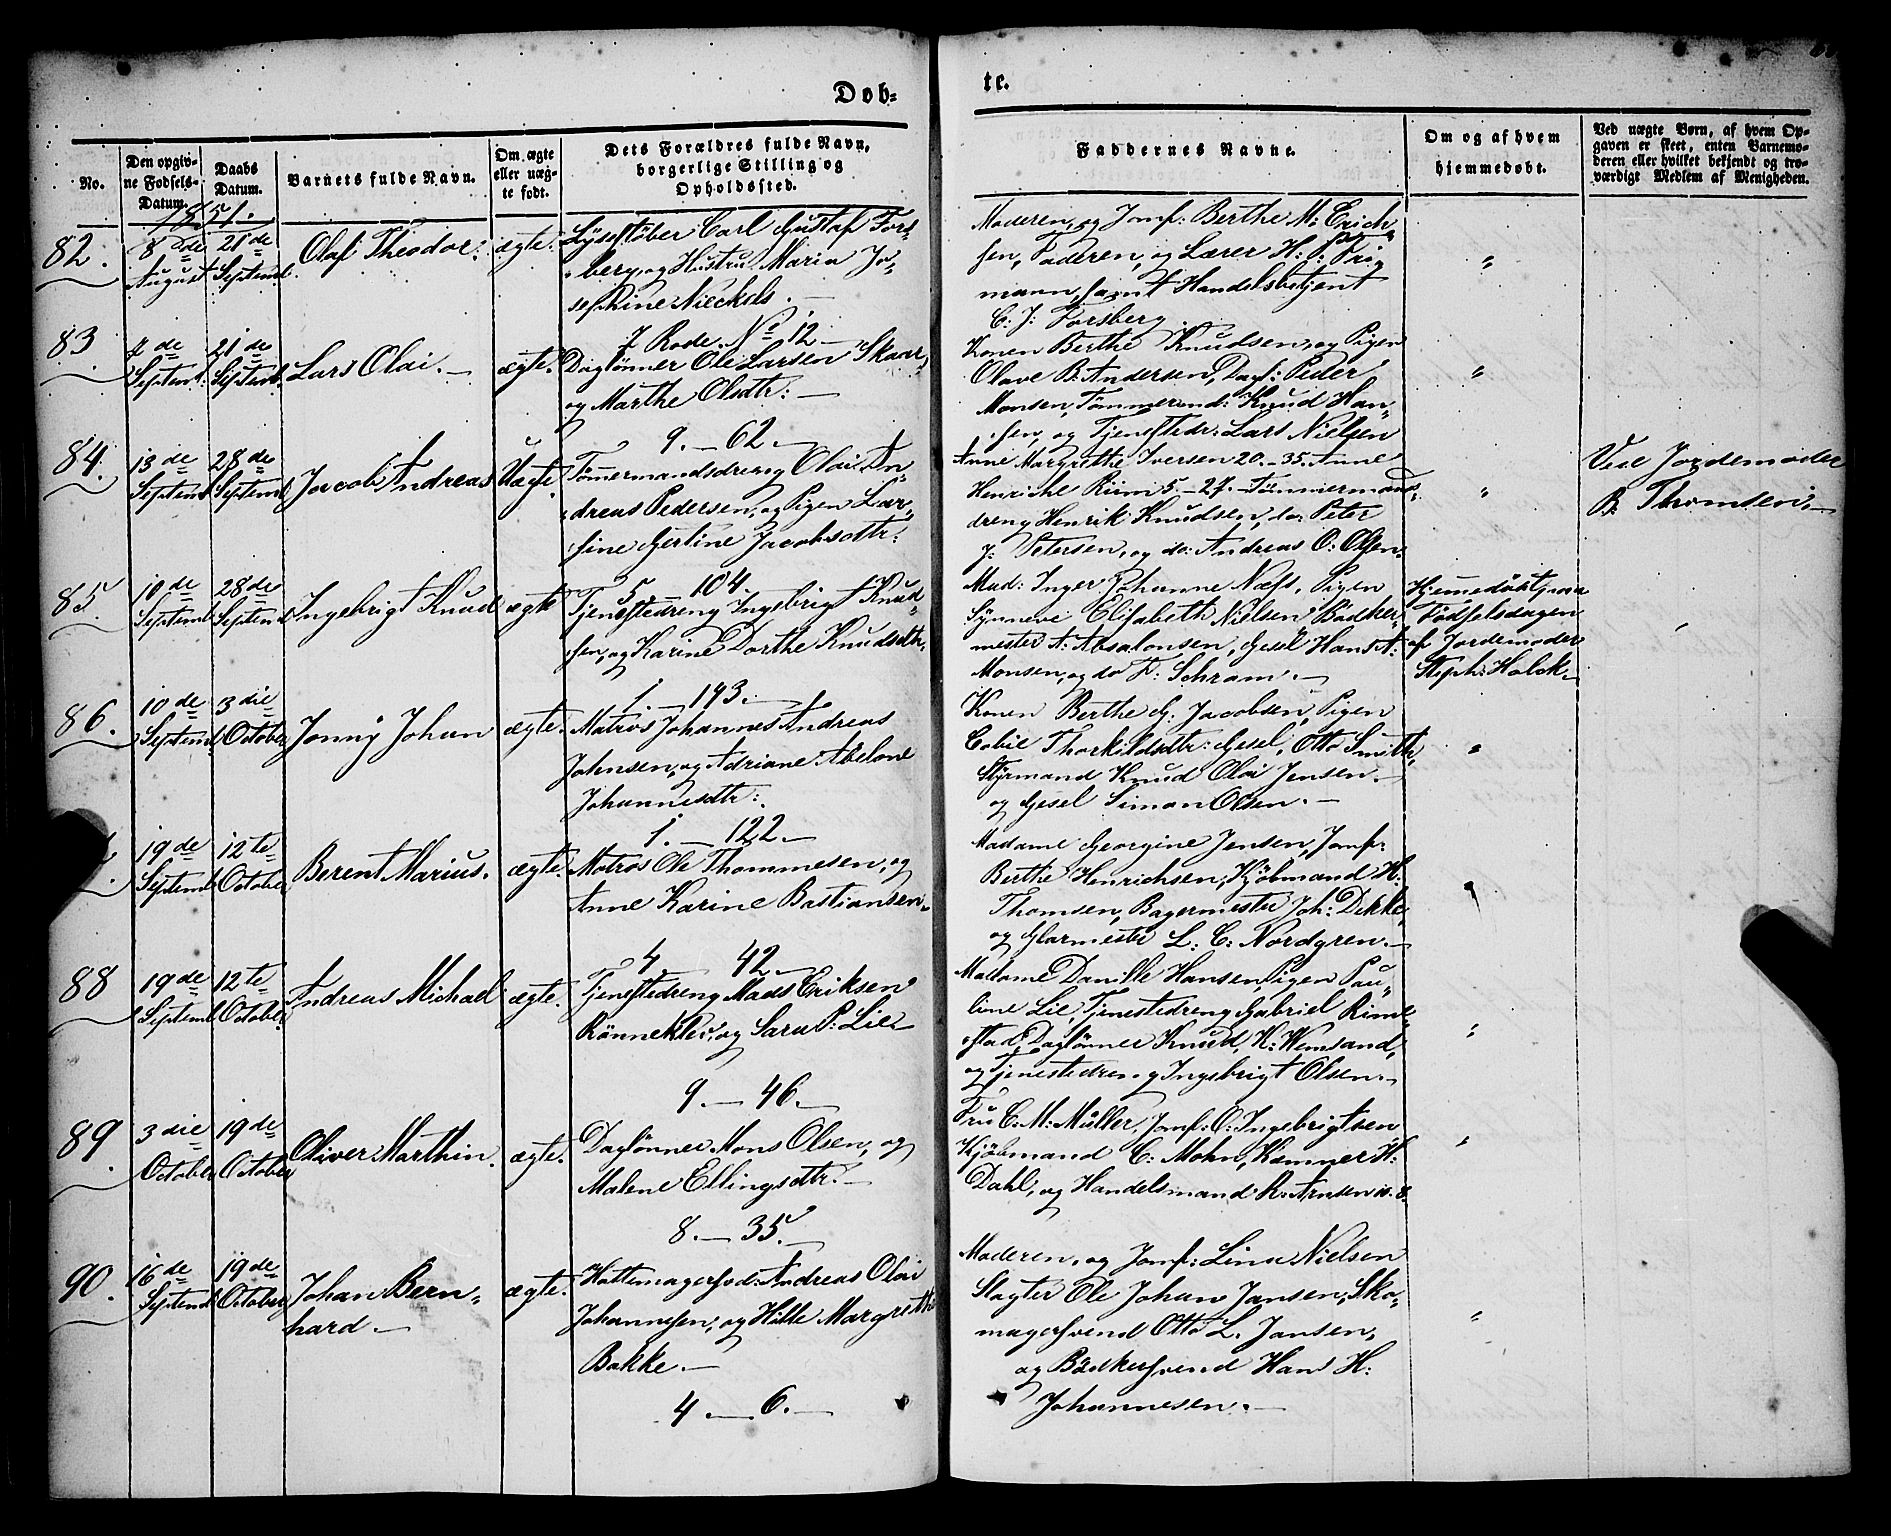 Døb-
te.
No.
Den opgiv-
ne Fødsels-
Datum.
Daabs
Datum.
Barnets fulde Navn.
Om ægte
eller uæg-
te født.
Dets Forældres fulde Navn,
borgerlige Stilling og
Opholdssted.
Faddernes Navne.
Om og af hvem
hjemmedøbt.
Ved uægte Børn, af hvem Op-
gaven er skeet, enten Barnemo-
deren eller hvilket bekjendt og tro-
værdigt Medlem af Menigheden.
1851.
82.
8de
August
21de
Septemb.
Olaf Theodor.
ægte.
Lysestøber Carl Gustaf Fors-
berg, og Hustru Maria Jo-
sephine Nieckels.
7 Rode. No 12.
Moderen, og Jomf: Berthe M: Erich-
sen, Faderen, og Lærer H: P:
mann, samt Handelsbetjent
C. J: Forsberg.
"
83
7de
Septemb.
21de
Septemb.
Lars Olai.
ægte.
Daglønner Ole Larsen Skaar,
og Marthe Olsdtr:
9. — 62.
Konen Berthe Knudsen, og Pigen
Olave B: Andersen, Dagl: Peder
Monsen, Tømmermd: Knud Han-
sen, og Tjenestedr: Lars Nielsen
"
84.
13de
Septemb.
28de
Septemb.
Jacob Andreas
Uægte.
Tømmermandsdreng Olai An-
dreas Pedersen, og Pigen Lar-
sine Gertine Jacobsdtr:
5 — 104.
Anne Margrethe Iversen 20. — 35. Anne
Henrichе Riim 5. — 27. Tømmermands-
dreng Henrik Knudsen, do: Peter
J: Petersen, og do: Andreas O: Olsen.
"
Ved Jordemoder
B. Thomsen.
85.
10de
Septemb.
28de
Septemb.
Ingebrigt Knud
ægte
Tjenestedreng Ingebrigt Knud-
sen, og Karine Dorthe Knudsdtr.
1. — 193.
Mad: Inger Johanne Næss, Pigen
Synneve Elisabeth Nielsen, Bødker-
mester A: Absalonsen, Gesel Hans A:
Monsen, og do F: Schram.
Hjemmedøbt paa
Fødselsdagen
af Jordemoder
Steph: Holck.
86.
10de
Septemb.
3die
October
Jonny Johan
ægte.
Matros Johannes Andreas
Johnsen, og Adriane Abelone
Johannesdtr:
1. — 122.
Konen Berthe G: Jacobsen, Pigen
Thorkildsdtr: Gesel, Otto Smith,
Styrmand Knud Olai Jensen.
og Gesel Simon Olsen.
"
19de
Septemb.
12te
October
Berent Marius.
ægte.
Matros Ole Thommesen, og
Anne Karine Bastiansen.
4 42.
Madame Georgine Jensen, Jomf:
Berthe Henrichsen, Kjøbmand H:
Thomsen, Bagermester Joh: Dekke,
og Glarmester L: C: Nordgren.
88
19de
Septemb.
12te
October
Andreas Michael
ægte.
Tjenestedreng Mads Eriksen
Rønneklev, og Sara P: Lie
9. — 46.
Madame Danille Hansen, Pigen Pau-
line Lie, Tjenestedreng Gabriel Rime-
stad, Dagl​ønner Knud, K: Wemsand,
og Tjenestedreng Ingebrigt Olsen.
"
89
3die
October
19de
October
Oliver Marthin.
ægte.
Dagl​ønner Mons Olsen, og
Malene Ellingsdtr.
8. — 35.
Fru C: M: Müller, Jomf: O: Ingebrigtsen
Kjøbmand C: Mohn, Kæmner H:
Dahl, og Handelsmand R: Arnsen
"
90.
16de
Septemb.
19de
October
Johan Bern-
hard.
ægte.
Hattemagersvd: Andreas Olai
Johannesen, og Hille Margrethe
Bakke.
4. — 6.
Moderen, og Jomf: Lina Nielsen
Slagter Ole Johan Jansen, Sko-
magersvend Otto L. Jansen,
og Bødkersvend Hans H:
Johannesen.
"